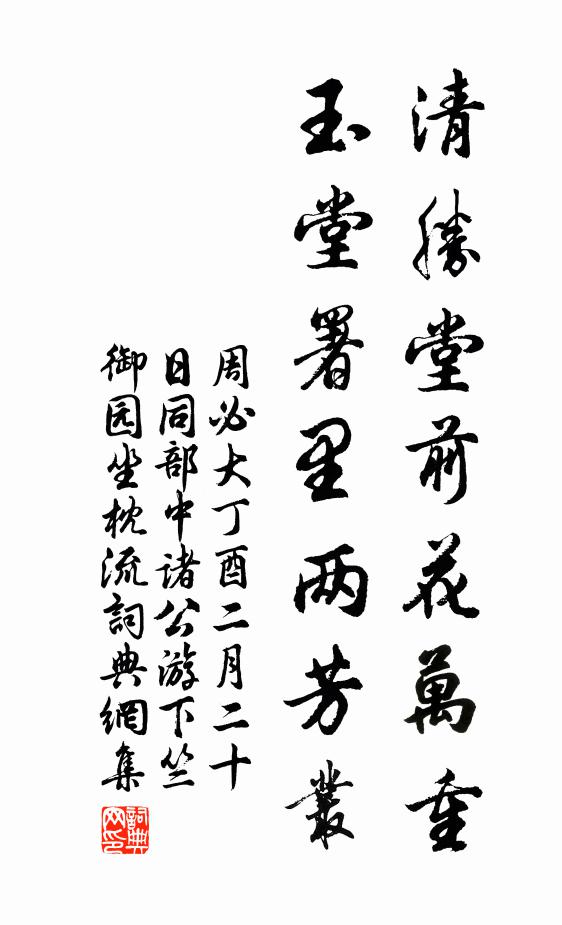 清勝堂前花萬重
玉堂署里两芳叢
周必大丁酉二月二十
日同部中诸公游下竺
御园坐枕流詞典網集
詞典网印